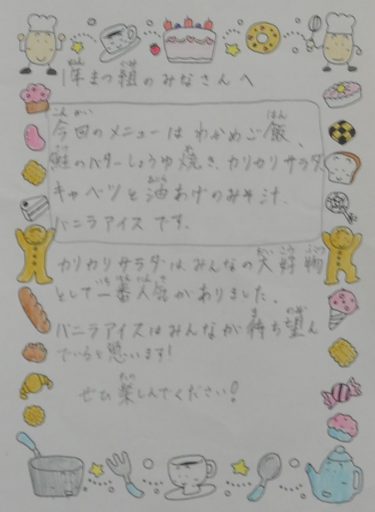 1年まつ組のみなさんへ
今回のメニューはわかめご飯、
鮭のバターしょうゆ焼き、カリカリサラダ、
キャベツと油あげのみそ汁、
バニラアイスです。
カリカリサラダはみんなの大好物
として一番人気がありました。
バニラアイスはみんなが待ち望ん
でいると思います!
ぜひ楽しんでください!